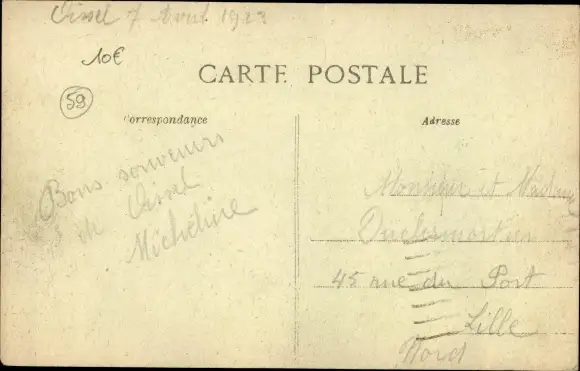 Oissel 7 Avril 1923
10€
59
CARTE POSTALE
Correspondance
Adresse
Bons souvenirs
de Oissel
Micheline
Monsieur et Madame
45 rue du Port
Lille
Nord